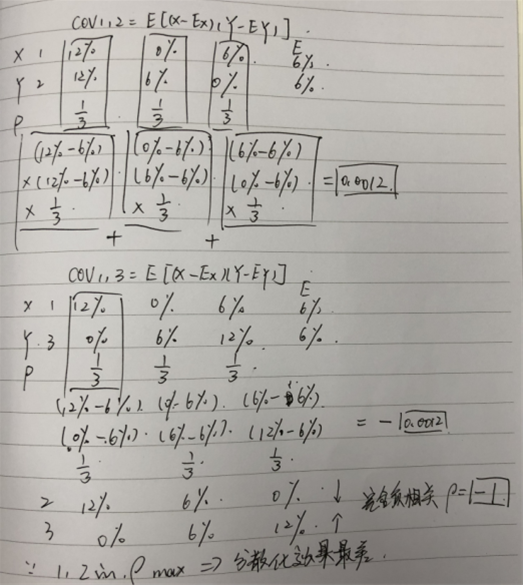 COV1,2 = E[(X-EX),(Y-EY)].
X 1 12% 0% 6%. E 6%.
Y 2 12% 6% 0% 6%.
P 1/3 1/3 1/3
(12%-6%) (0%-6%) (6%-6%)
×(12%-6%) (6%-6%) (0%-6%) = 0.0012.
× 1/3 × 1/3 × 1/3
+ +
COV1,3 = E[(X-EX)(Y-EY)]
E
X 1 12% 0% 6% 6%
Y.3 0% 6% 12%. 6%.
P 1/3 1/3 1/3.
(12%-6%). (0-6%). (6%-6%).
(0%-6%). (6%-6%). (12%-6%) = -0.0012
1/3. 1/3. 1/3.
2 12% 6% 0% ↓ 完全负相关 ρ=-1
3 0% 6% 12%. ↑
∵ 1,2 in. ρ max => 分散化效果最差.